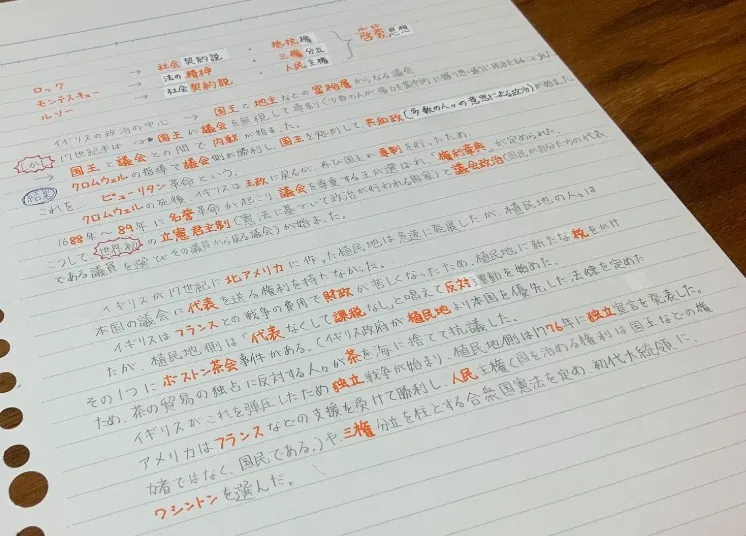 ロック → 社会契約説 ・ 抵抗権
モンテスキュー → 法の精神 ・ 三権分立
ルソー → 社会契約説 ・ 人民主権
啓蒙思想
イギリスの政治の中心 → 国王と地主などの富裕層からなる議会
17世紀半ば 国王が議会を無視して専制
しかし
→ 国王と議会との間で内戦が始まった。
結果 クロムウェルの指導で議会側が勝利し、国王を処刑して、共和政(多数の人々の意思による政治)が始まった。
これを… ピューリタン革命という。
クロムウェルの死後、イギリスは王政に戻るが、再び国王が専制を行ったため
1688年〜89年に名誉革命が起こり、議会を尊重する王が選ばれ「権利章典」が定められた。
こうして世界初の立憲君主制(憲法に基づいて政治が行われる国家)と議会政治(国民が自分たちの代表
である議員を選びその議員から成る議会)が始まった。
イギリスが17世紀に北アメリカに作った植民地は急速に発展したが、植民地の人々は
本国の議会に代表を送る権利を持たなかった。
イギリスはフランスとの戦争の費用で財政が苦しくなったため、植民地に新たな税をかけ
たが、植民地側は"代表なくして課税なし"と唱えて反対運動を始めた。
その1つにボストン茶会事件がある。(イギリス政府が植民地より本国を優先した法律を定めた
ため、茶の貿易の独占に反対する人々が茶を海に捨てて抗議した。
イギリスがこれを弾圧したため独立戦争が始まり、植民地側は1776年に独立宣言を発表した。
アメリカはフランスなどの支援を受けて勝利し、人民主権(国を治める権利は国王などの権
力者ではなく、国民である。)や、三権分立を柱とする合衆国憲法を定め、初代大統領に、
ワシントンを選んだ。